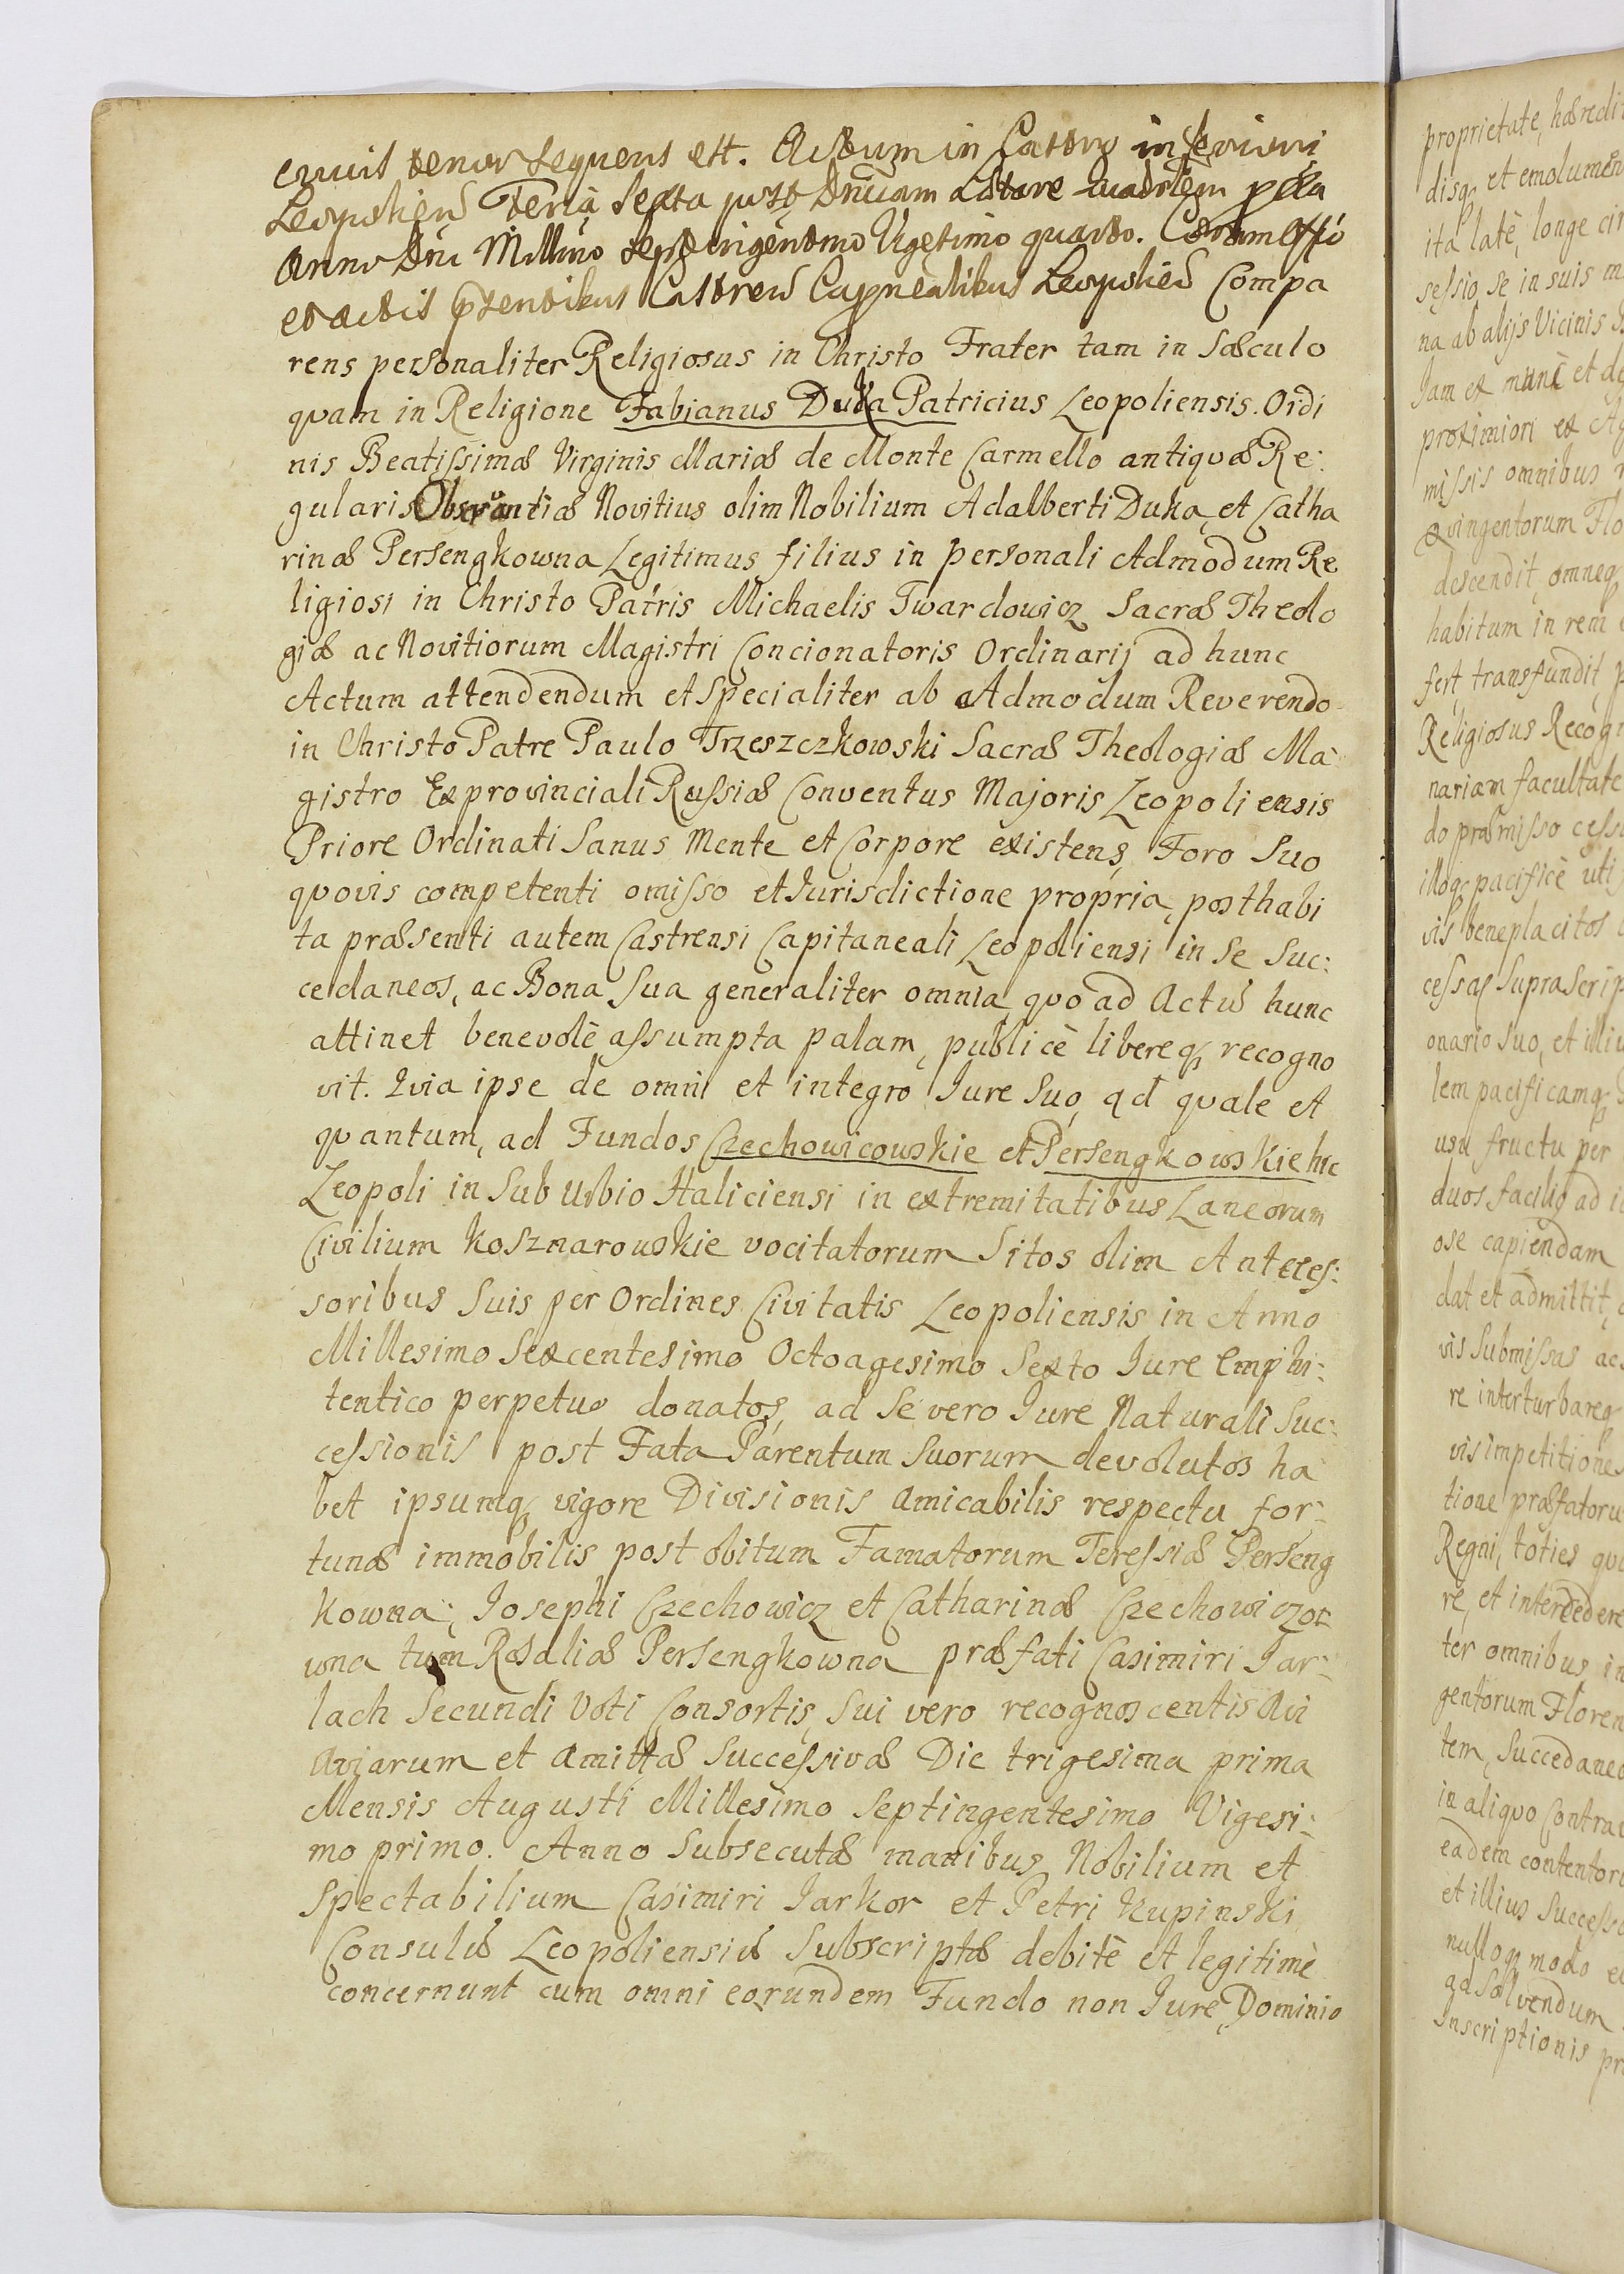 cuius tenor sequens est. Actum in Castro inferiori
Leopolien̄ Feria Sexta post Dn̄icam Laetare Quadrlem pxa
Anno Dni Millmo septeringentmo Vigesimo quarto. Coram Offo
et actis pntentibus Castren̄ Capnealibus Leopolien̄ Compa
rens personaliter Religiosus in Christo Frater tam in Sæculo
quam in Religione Fabianus Duka Patricius Leopoliensis. Ordi
nis Beatissimæ Virginis Mariæ de Monte Carmello antiquæ Re:
gularis Observantiæ Novitius olim Nobilium Adalberti Duka, et Catha
rinæ Persengkowna Legitimus filius in personali Admodum Re
ligiosi in Christo Patris Michaelis Twardowicz Sacræ Theolo
giæ ac Novitiorum Magistri Concionatoris Ordinarij ad hunc
Actum attendendum et Specialiter ab Admodum Reverendo
in Christo Patre Paulo Trzeszczkowski Sacræ Theologiæ Ma
gistro Exprovinciali Russiæ Conventus Majoris Leopoliensis
Priore Ordinati Sanus Mente et Corpore existens, Foro Suo
quovis competenti omisso et Jurisdictione propria, posthabi
ta præsenti autem Castrensi Capitaneali Leopoliensi in Se Suc:
cedaneos, ac Bona Sua generaliter omnia quo ad Actū hunc
attinet benevolè assumpta palam, publicè libereq, recogno
vit. Quia ipse de omni et integro Jure Suo, qd quale et
quantum, ad Fundos Czechowicowskie et Persengkowskie hic
Leopoli in Suburbio Haliciensi in extremitatibus Laneorum
Civilium Kosznarowskie vocitatorum Sitos olim Anteces:
soribus Suis per Ordines Civitatis Leopoliensis in Anno
Millesimo Sexcentesimo Octoagesimo Sexto Jure Emphi:
tentico perpetuo donatos, ad Se vero Jure Naturali Suc:
cessionis post Fata Parentum Suorum devolutos ha
bet ipsumq, vigore Divisionis amicabilis respectu for:
tunæ immobilis post obitum Famatorum Teressiæ Perseng
kowna; Josephi Czechowicz et Catharinæ Czechowiczo:
wna tum Rosaliæ Persengkowna præfati Casimiri Jar:
lach Secundi Voti Consortis, Sui vero recognoscentis Avi
Aviarum et Amittæ Successivæ Die trigesima prima
Mensis Augusti Millesimo Septingentesimo Vigesi:
mo primo. Anno Subsecutæ manibus Nobilium et
Spectabilium Casimiri Jarkor et Petri Kupinski
Consulū Leopoliensiū Subscriptæ debitè et legitimè
concernunt cum omni eorundem Fundo non Jure, Dominio
proprietate, hæredi
disq, et emolumen
ita latè, longe cir
sessio, se in suis m
na ab alijs Vicinis
Jam ex nunc et de
proximiori ex
missis omnibus
Quingentorum Flo
descendit, omneq
habitum in rem
fert, transfundit,
Religiosus Recog
nariam facultate
do præmisso cess
illoq, pacificè uti
vis beneplacitos
cessas Suprascrip
onario Suo, et illiu
lem pacificamq
usu fructu per
duos facilis ad i
ose capiendam
dat et admittit,
vis Submissus ac
re interturbareq
vis impetitione
tione præfatoru
Regni, toties qu
re, et intercedere
ter omnibus in
gentorum Floren
tem, Succedaneo
in aliquo Contra
eadem contentor
et illius Success
nulloq modo
ad Solvendum
Inscriptionis pr